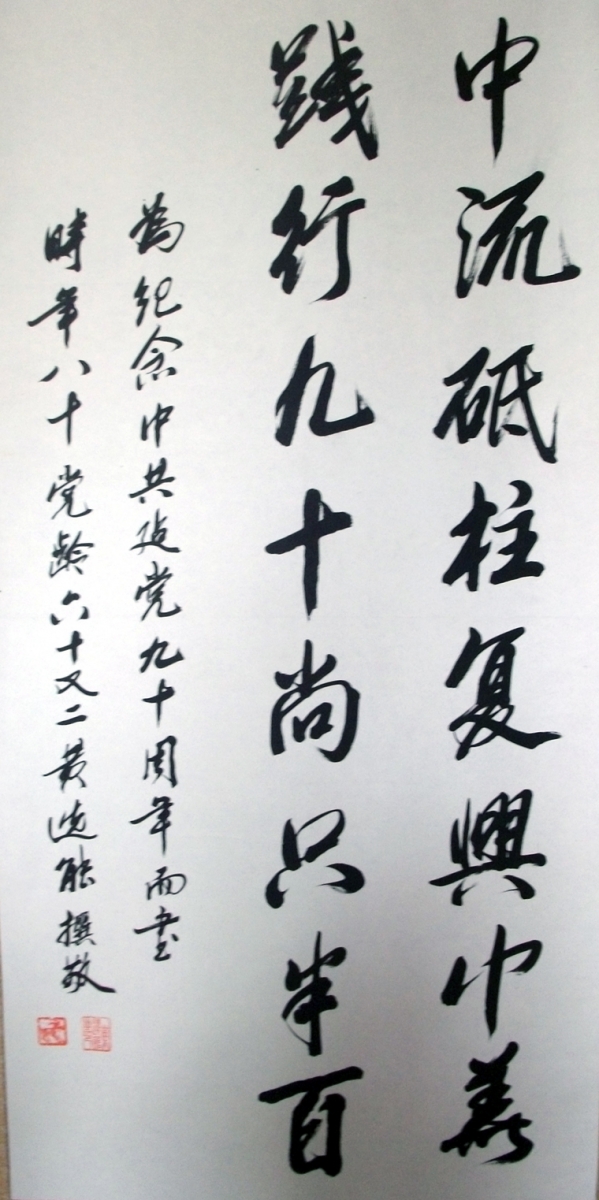 中流砥柱复興中華
践行九十尚只半百
為紀念中共建党九十周年而書
時年八十党龄六十又二黄能撰敬